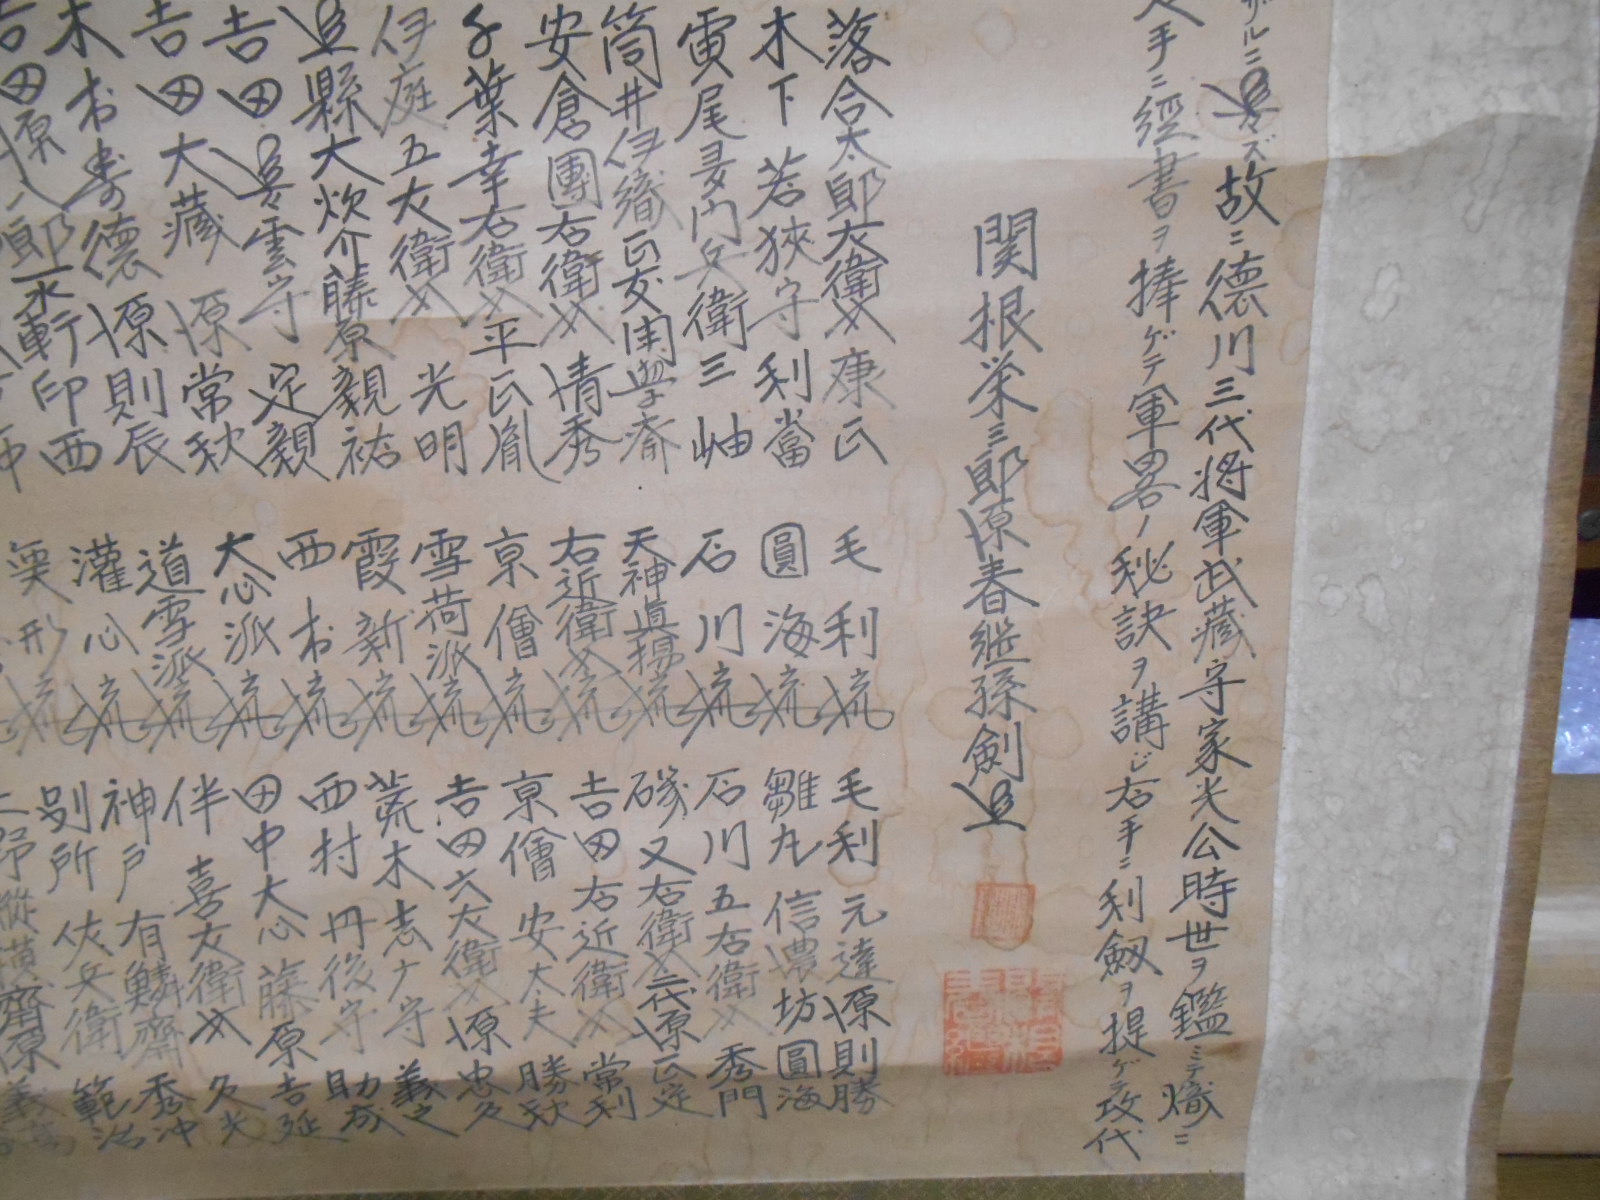 ザルニ
故ニ徳川三代将軍武藏守家光公時世ヲ鑑ミテ熾ニ
手ニ經書ヲ捧ゲテ軍畧ノ秘訣ヲ講ジ右手ニ利劔ヲ提ゲテ攻代
関根栄三郎源春継孫剣
落合太郎左衛門康正
木下若狹守利當
寅尾 内兵衛三岫
筒井伊織正 閑學斎
安倉團右衛門情秀
千葉幸右衛門平正胤
伊庭五左衛門光明
縣大炊介藤原親祐
吉田 雲守定親
吉田大藏源常秋
木村壽德源則辰
吉田源八郎 永軒印西
毛利流
圓海流
石川流
天神眞揚流
右近衛門流
京僧流
雪荷派流
霞新流
西村流
大心派流
道雪派流
灌心流
形流
毛利元達源則勝
雛丸信濃坊圓海
石川五右衛門秀門
磯又右衛門二代源正定
吉田右近衛門常利
京僧安太夫勝秋
吉田六左衛門源忠久
荒木志ナ守義之
西村丹後守助成
田中大心藤原吉延
伴喜左衛門久光
神戸有鱗齋秀沖
別所佐兵衛範治
上野縱横齋源義